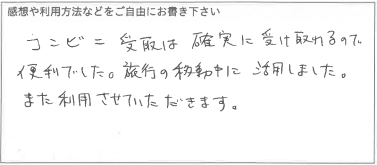 感想や利用方法などをご自由にお書き下さい
コンビニ受取は確実に受け取れるので
便利でした。旅行の移動中に活用しました。
また利用させていただきます。